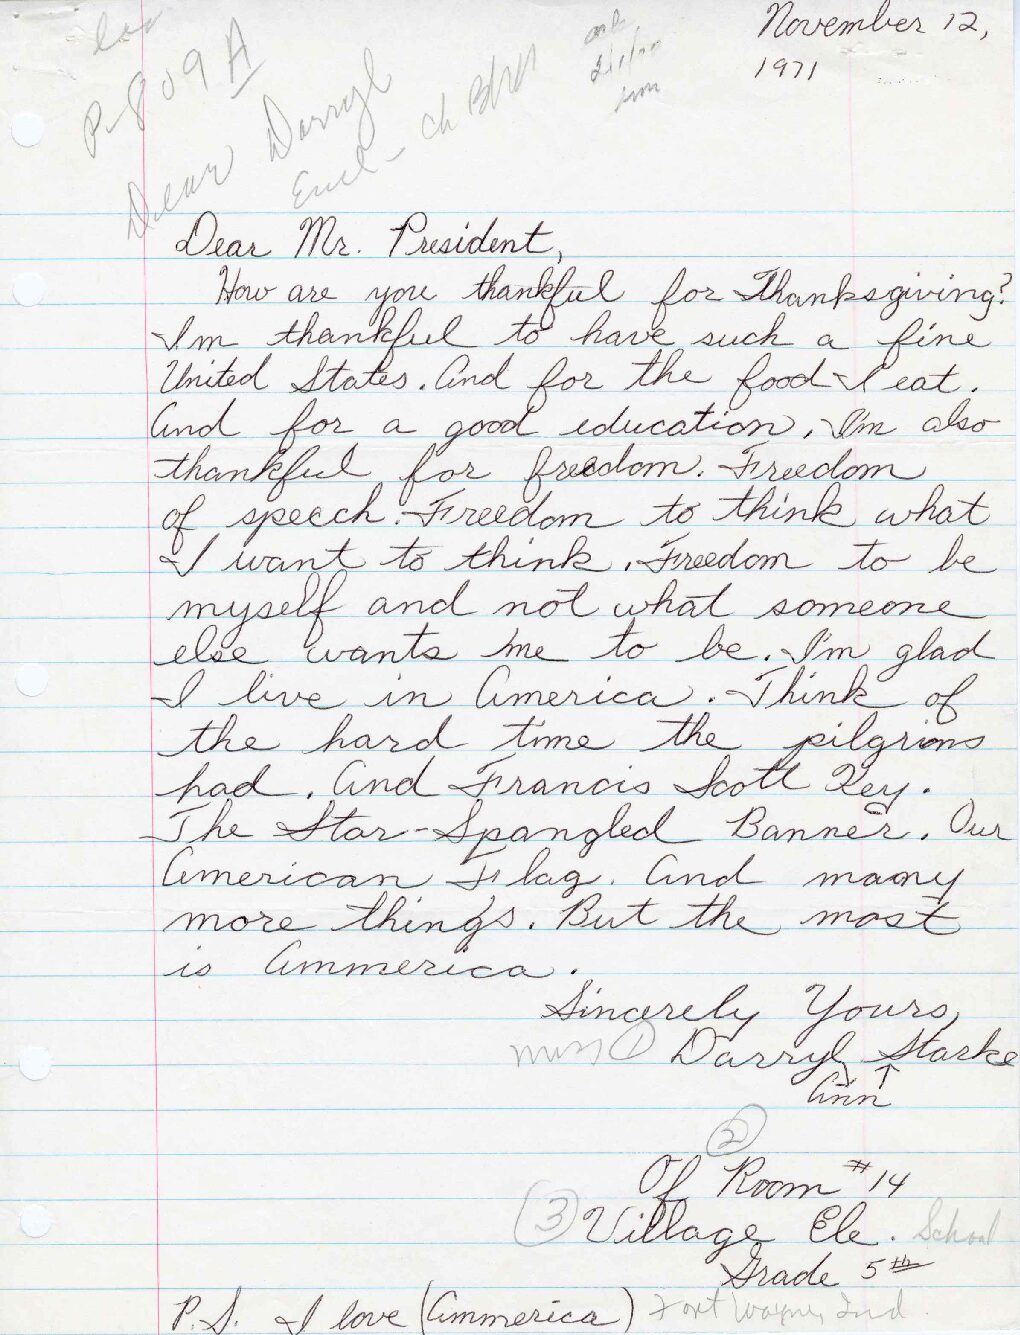 November 12,
1971
P-809A
Dear Darryl
Encl-
Dear Mr. President,
How are you thankful for Thanksgiving?
I'm thankful to have such a fine
United States. And for the food I eat.
And for a good education. I'm also
thankful for freedom. Freedom
of speech. Freedom to think what
I want to think. Freedom to be
myself and not what someone
else wants me to be. I'm glad
I live in America. Think of
the hard time the pilgrims
had. And Francis Scott Key.
The Star-Spangled Banner. Our
American Flag. And many
more things. But the most
is Ammerica.
Sincerely Yours,
Miss ① Darryl Starke
Ann ↑
②
Of Room #14
③ Village Ele. School
Grade 5th
P.S. I love (Ammerica) Fort Wayne, Ind.